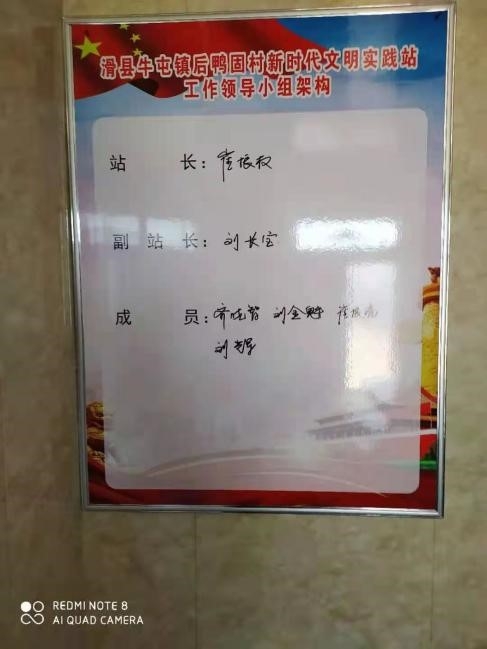 滑县牛屯镇后鸭固村新时代文明实践站
工作领导小组架构
站 长：崔振权
副 站 长：刘长宝
成 员：刘金魁 崔振亮
REDMI NOTE 8
AI QUAD CAMERA